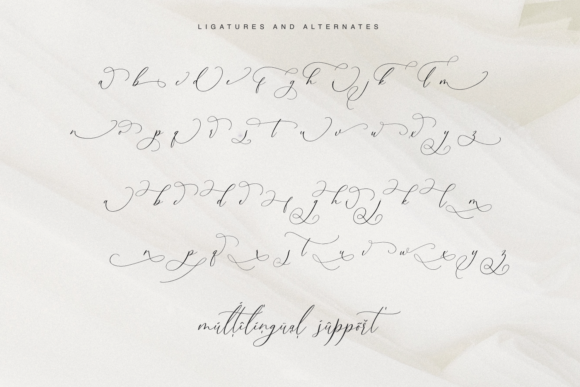 LIGATURES AND ALTERNATES
a b c d e f g h i j k l m
n o p q r s t u v w x y z
a b c d e f g h i j k l m
multilingual support